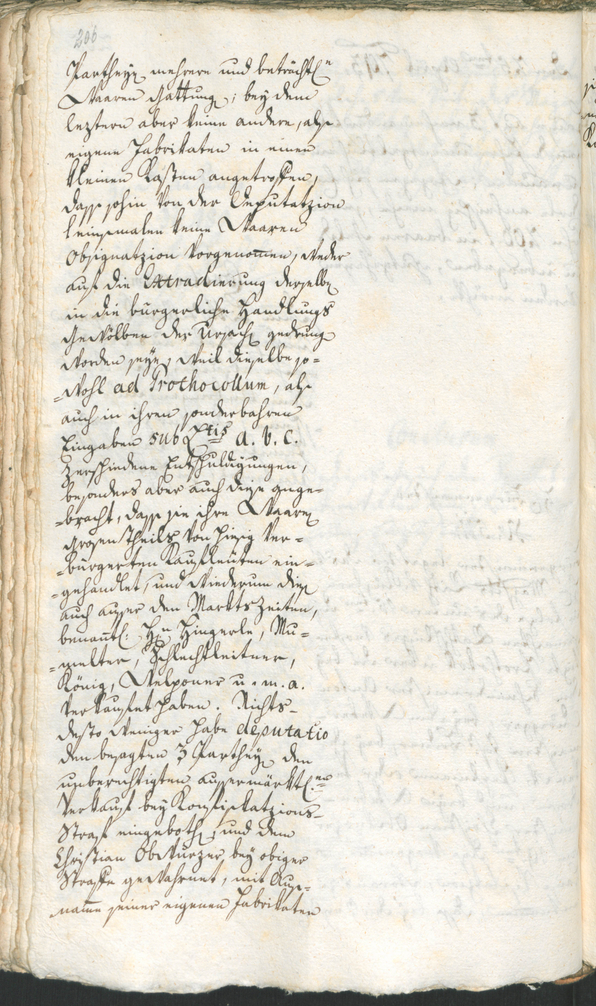 206
Partheyen mehrere und beträchtl:n
Waaren Gattung; bey dem
leztern aber keine andere, als
eigene Fabrikaten in einen
kleinen Kasten angetroffen,
dass sohin von der Deputatzion
keine Waaren
Obsignatzion vorgenomen, weder
auf die Extradierung derselbe
in die bürgerliche Handlungs
Gewölber der Ursach gedrung
worden seye, weil dieselbe so=
=wohl ad Prothocollum, als
auch in ihren sonderbahren
Eingaben sub Ltis a. b. c.
verschiedene Entschuldigungen,
besonders aber auch diese ange=
=bracht, dass sie ihre Waaren
grosen Theils von hiesig ver=
=bürgerten Kaufleüten ein=
=gehandlet, und wiederum dies
auch ausser den Markts Zeiten,
benantl: H:n Hingerle, Mu=
=melter, Schlechtleitner,
König, Welponer u. m. a.
verkaufet haben. Nichts=
desto weniger habe deputatio
den besagten 3 Partheyen den
unberechtigten aussermärktl:en
Verkauf bey Konfiskatzions=
Straf eingebothen, und dem
Christian Obwurzer bey obiger
Strafe gewahrnet, mit Aus=
=name seiner eigenen Fabrikaten